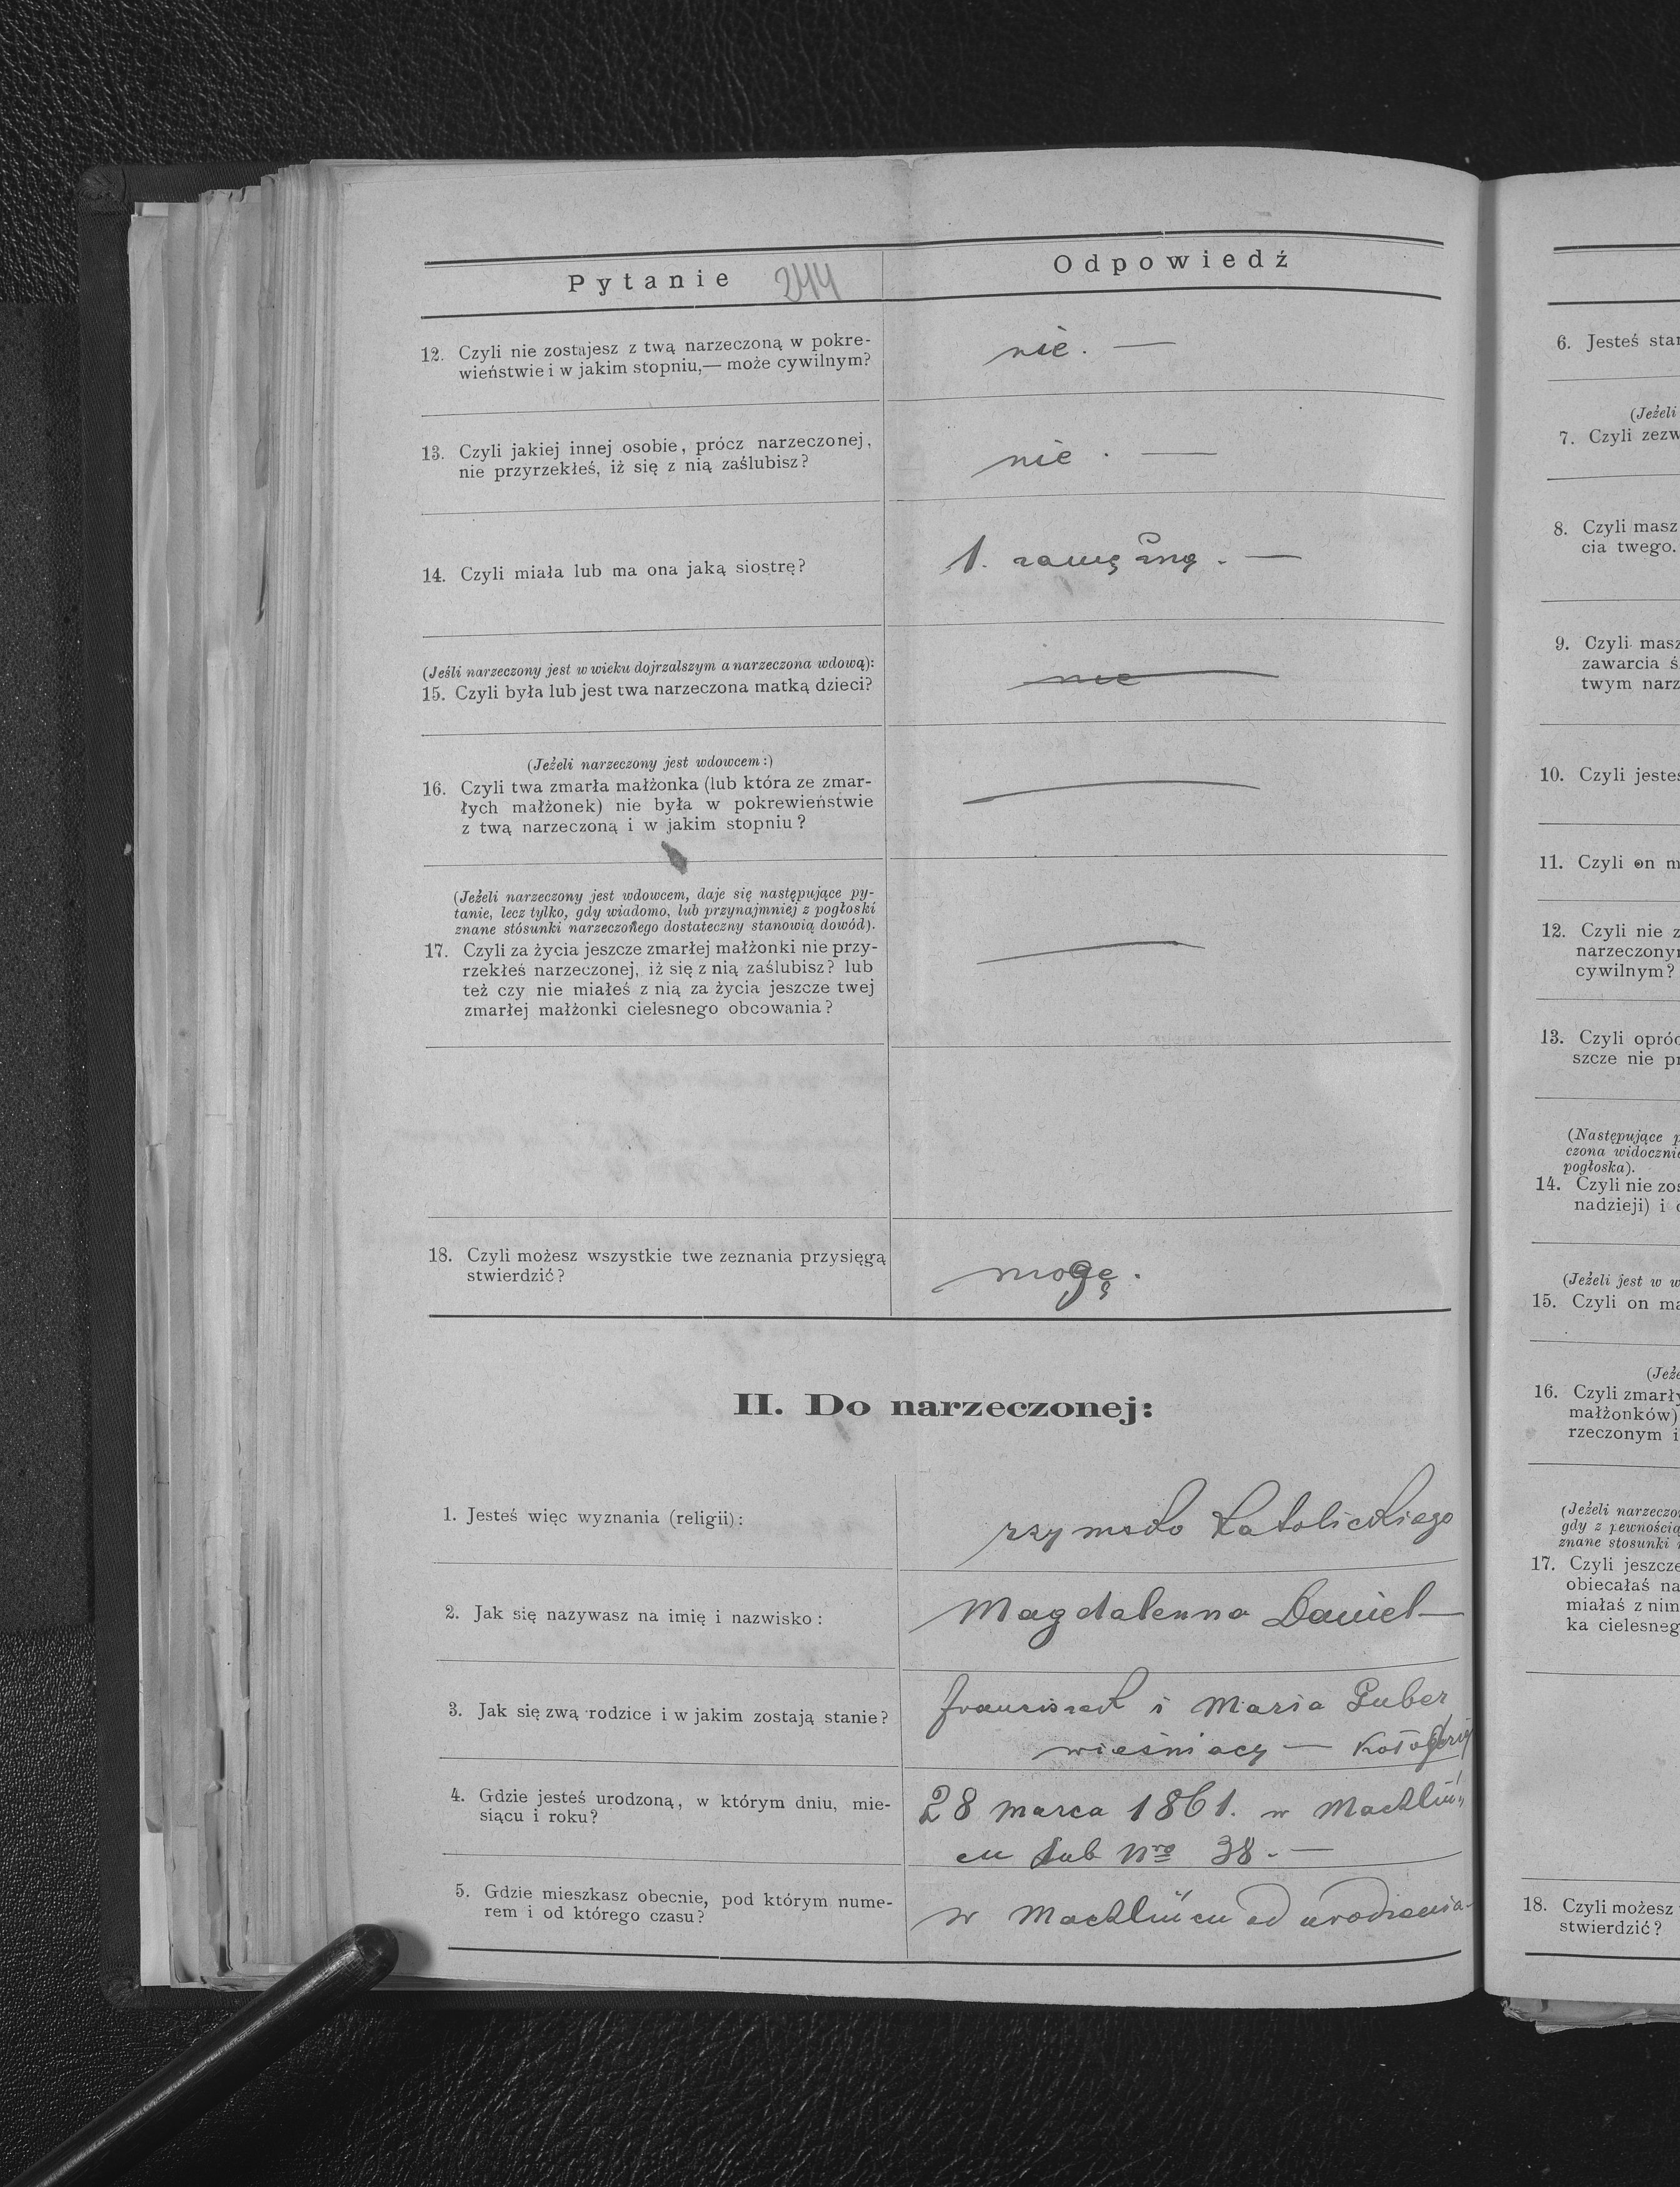 Pytanie 244 Odpowiedź
12. Czyli nie zostajesz z twą narzeczoną w pokre-
wieństwie i w jakim stopniu,— może cywilnym?
nie. —
13. Czyli jakiej innej osobie, prócz narzeczonej,
nie przyrzekłeś, iż się z nią zaślubisz?
nie. —
14. Czyli miała lub ma ona jaką siostrę?
1. zamężną. —
(Jeśli narzeczony jest w wieku dojrzalszym a narzeczona wdową):
15. Czyli była lub jest twa narzeczona matką dzieci?
nie
(Jeżeli narzeczony jest wdowcem:)
16. Czyli twa zmarła małżonka (lub która ze zmar-
łych małżonek) nie była w pokrewieństwie
z twą narzeczoną i w jakim stopniu?
(Jeżeli narzeczony jest wdowcem, daje się następujące py-
tanie, lecz tylko, gdy wiadomo, lub przynajmniej z pogłoski
znane stósunki narzeczonego dostateczny stanowią dowód).
17. Czyli za życia jeszcze zmarłej małżonki nie przy-
rzekłeś narzeczonej, iż się z nią zaślubisz? lub
też czy nie miałeś z nią za życia jeszcze twej
zmarłej małżonki cielesnego obcowania?
18. Czyli możesz wszystkie twe zeznania przysięgą
stwierdzić?
mogę.
II. Do narzeczonej:
1. Jesteś więc wyznania (religii):
rzymsko katolickiego
2. Jak się nazywasz na imię i nazwisko:
Magdalenna Daniel—
3. Jak się zwą rodzice i w jakim zostają stanie?
franciszek i Maria Puber
wieśniacy —
4. Gdzie jesteś urodzoną, w którym dniu, mie-
siącu i roku?
28 marca 1861. w Machliń„
cu sub Nro 38. —
5. Gdzie mieszkasz obecnie, pod którym nume-
rem i od którego czasu?
w Machlińcu od urodzenia
6. Jesteś star
(Jeżeli
7. Czyli zezw
8. Czyli masz
cia twego.
9. Czyli masz
zawarcia ś
twym narz
10. Czyli jesteś
11. Czyli on m
12. Czyli nie z
narzeczonym
cywilnym?
13. Czyli opróc
szcze nie pr
(Następujące p
czona widocznie
pogłoska).
14. Czyli nie zos
nadzieji) i
(Jeżeli jest w w
15. Czyli on ma
(Jeże
16. Czyli zmarły
małżonków)
rzeczonym i
(Jeżeli narzeczon
gdy z pewnością
znane stosunki
17. Czyli jeszcze
obiecałaś na
miałaś z nim
ka cielesneg
18. Czyli możesz
stwierdzić?